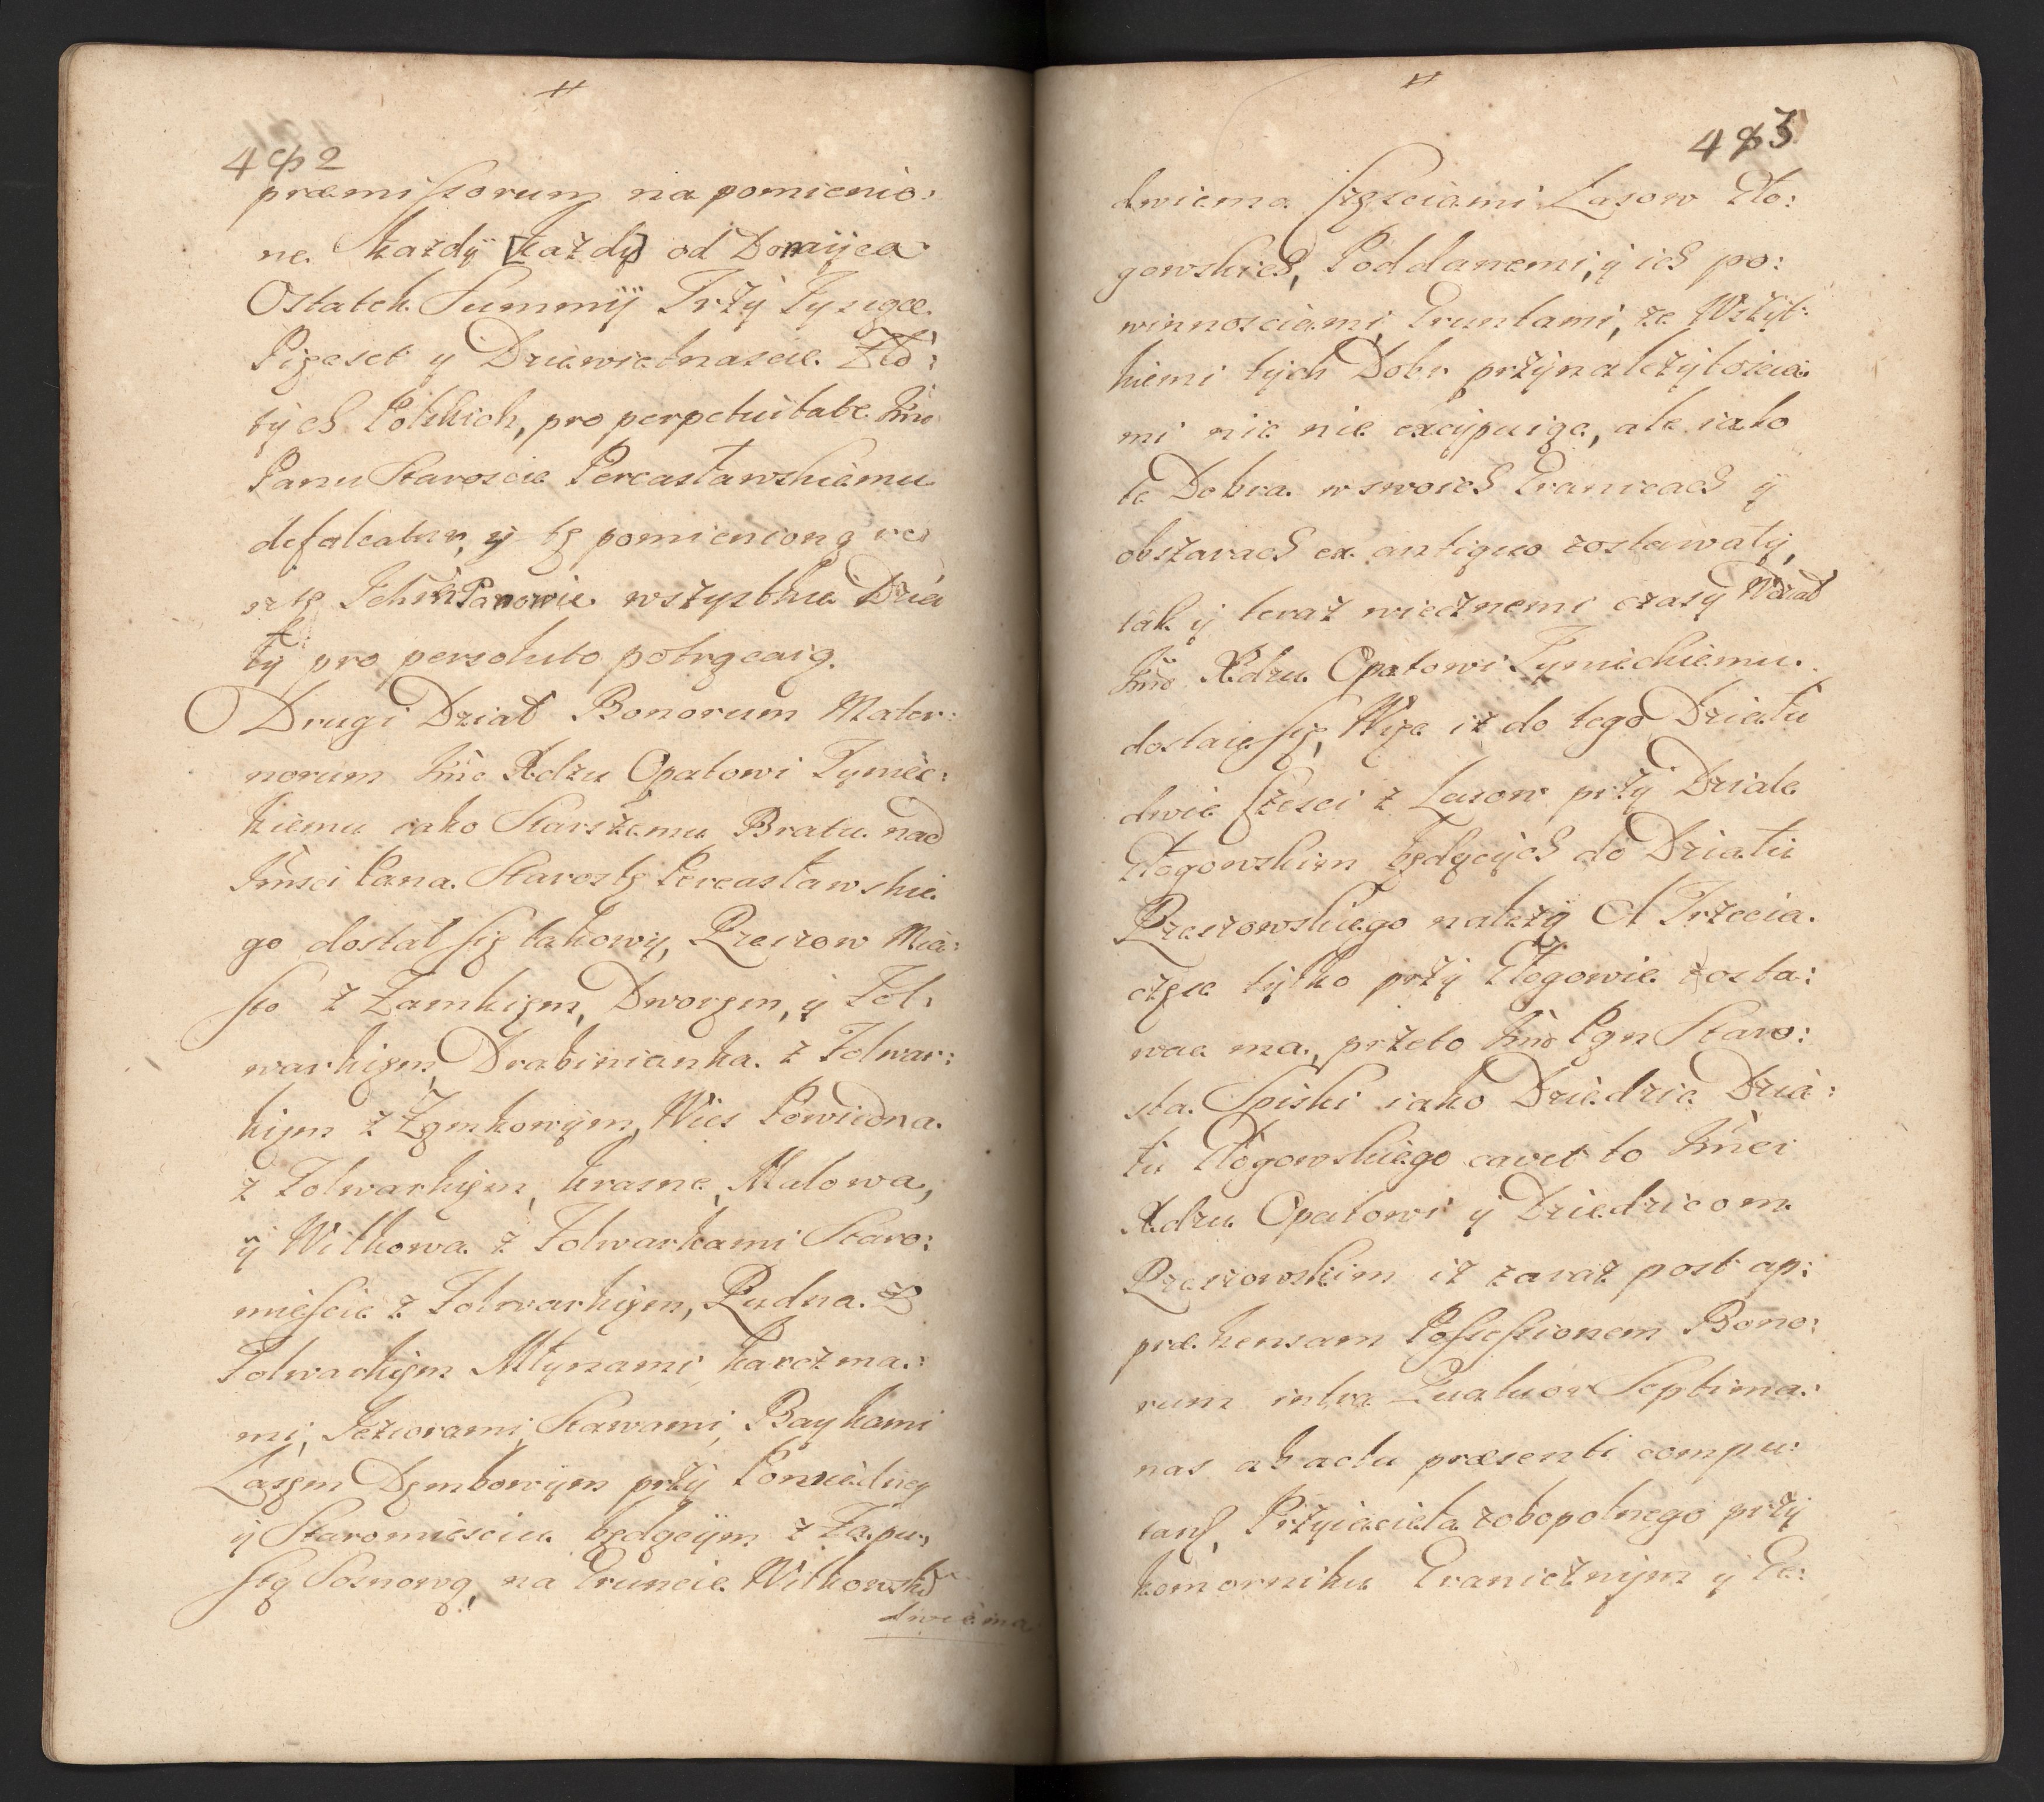 482
præmissorum na pomienio:
ne każdÿ [każdy] od Dornÿca
Ostatek Summÿ Trzÿ Tysiące
Pięcset y Dziewietnascie Zło:
tÿch Polskich, pro perpetuitate Jmo
Panu Staroscie Pereasławskiemu
defalcatur, ÿ tę pomienioną re
sztę Ichm Panowie wszystkie Dzia
łÿ pro persoluto potrącaią.
Drugi Dział Bonorum Mater:
norum Jmc Xdzu Opatowi Tyniec:
kiemu iako Starszemu Bratu nad
Jmsci Pana Starostę Pereasławskie
go dostał się takowÿ, Rzeszow Mia:
sto z Zamkięm, Dworęm, ÿ Fol:
warkięm Drabinianka z Folwar:
kięm z Zęmkowÿm, Wies Powiedna
z Folwarkięm, krasne, Malowa,
ÿ Wilkowa z Folwarkami Staro:
miescie z Folwarkięm, Rudna z
Folwarkięm Młynami, karczma:
mi, Jeziorami, Stawami, Baykami
Lasęm Dęmbowÿm przÿ Powiedney
ÿ Staromiesciu będącÿm z Zapu:
stą Sosnową, na Gruncie Wilkowskÿ
dwiema
483
dwiema częsciami Lasow Gło:
gowskich, Poddanemi, ÿ ich po:
winnosciami, Gruntami, ze Wszÿt:
kiemi tÿch Dobr przÿnależytoscia:
mi nic nie excÿpuiąc, ale iako
te Dobra w swoich Granicach ÿ
obszarach ex antiquo zostawałÿ,
tak ÿ teraz wiecznemi czasÿ Wdział
Jmo Xdzu Opatowi Tynieckiemu
dostaie się, Więc iż do tego Działu
dwie częsci z Lasow przÿ Dziale
Głogowskim będącÿch do Działu
Rzeszowskiego należÿ A Trzecia
częsc tÿlko przÿ Głogowie zosta:
wac ma, przeto Jmo Pan Staro:
sta Spiski iako Dziedzic Dzia:
łu Głogowskiego cavet to Jmci
Xdzu Opatowi ÿ Dziedzicom
Rzeszowskim iż zaraz post ap:
præhensam Possessionem Bono:
rum intra Quatuor Septima:
nas ab actu præsenti compu:
tans, Przyiaciela zobopolnego przÿ
komorniku Granicznÿm ÿ Ge: